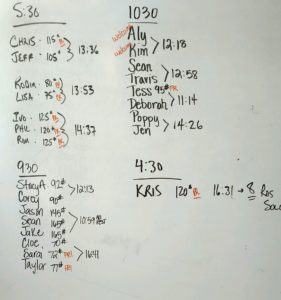 5:30
CHRIS - 115# PR
JEFF - 105#
13:36
ROBIN - 80# PR
LISA - 75# PR
13:53
IVO - 125# PR
PHIL - 120# PR
RON - 125# PR
14:37
1030
welcome Aly
welcome Kim
12:18
Sean
Travis
12:58
Tess 95# PR
Deborah
11:14
Poppy
Jen
14:26
930
Stacy A 92#
Corey 90#
12:13
Jason 145#
Sean 165#
Jake 165#
10:59
Cloe 70#
Sara 72# PR!
Taylor 77# PR!
16:41
4:30
KRIS 120# PR 16:31 → 8